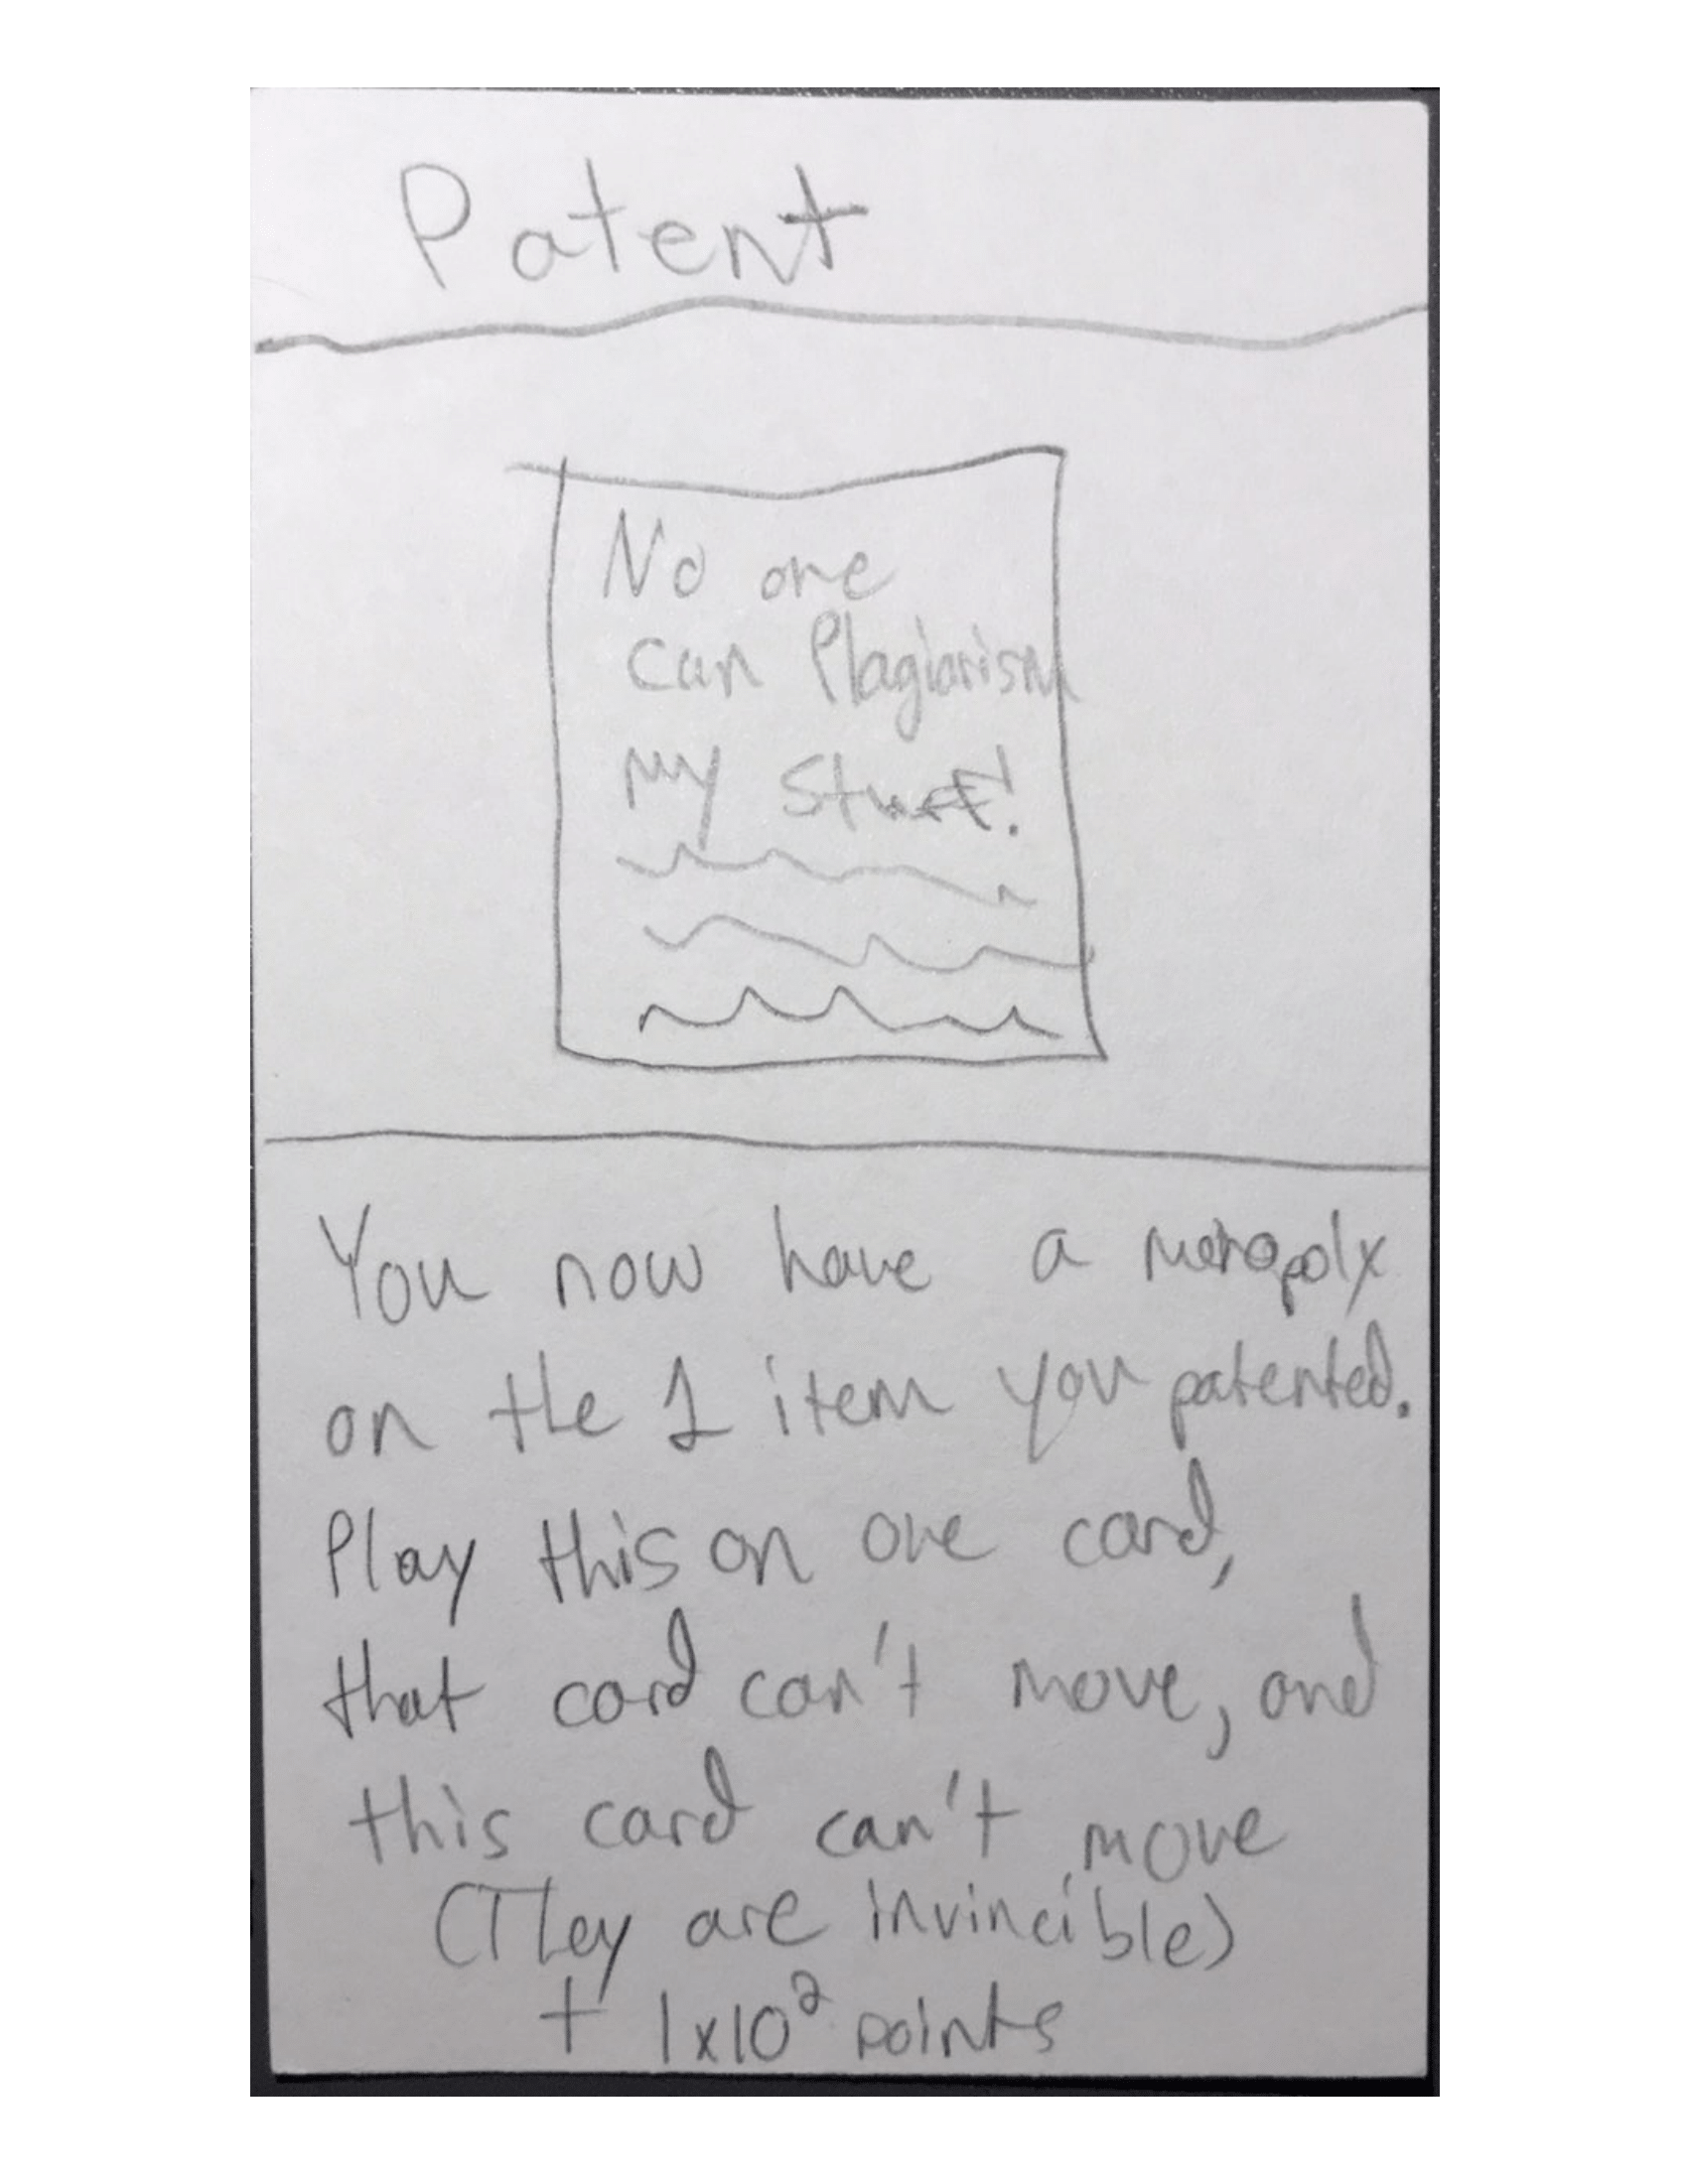 Patent
No one
can Plagiarism
my stuff!
You now have a monopoly
on the 1 item you patented.
Play this on one card,
that card can't move, and
this card can't move
(They are invincible)
+ 1x10² points